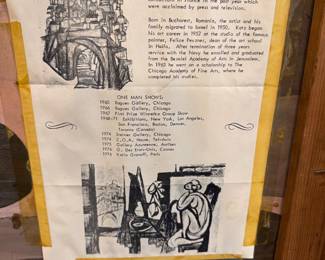 exhibitions in France in the past year which
were acclaimed by press and television.
Born in Bucharest, Romania, the artist and his
family migrated to Israel in 1950. Katz began
his art career in 1952 at the studio of the famous
painter, Felice Pevzner, dean of the art school
in Haifa. After termination of three years
service with the Navy he enrolled and graduated
from the Bezalel Academy of Arts in Jerusalem.
In 1962 he went on a scholarship to The
Chicago Academy of Fine Arts, where he
completed his studies.
ONE MAN SHOWS:
1965 Rogues Gallery, Chicago
1966 Rogues Gallery, Chicago
1967 First Prize Winnetka Group Show
1968-71 Exhibitions, New York, Los Angeles,
San Francisco, Boston, Denver,
Toronto (Canada)
1974 Steiner Gallery, Chicago
1974 Z.O.A. House, Tel-Aviv
1975 Gallery
1976 G. Des Etats-Unis, Cannes
1976 Katia Granoff, Paris